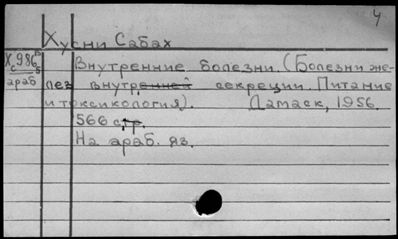 4
Хусни Сабах
Х 986
с 5
араб
Внутренние болезни. (Болезни же-
лез внутренней секреции. Питание
и токсикология). Дамаск, 1956.
566 стр.
На араб. яз.